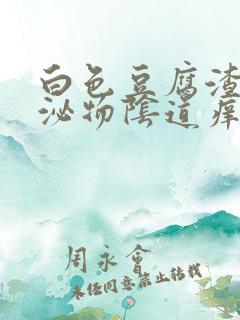 白色豆腐渣
泌物陰道痒
周永會
未经同意禁止转载